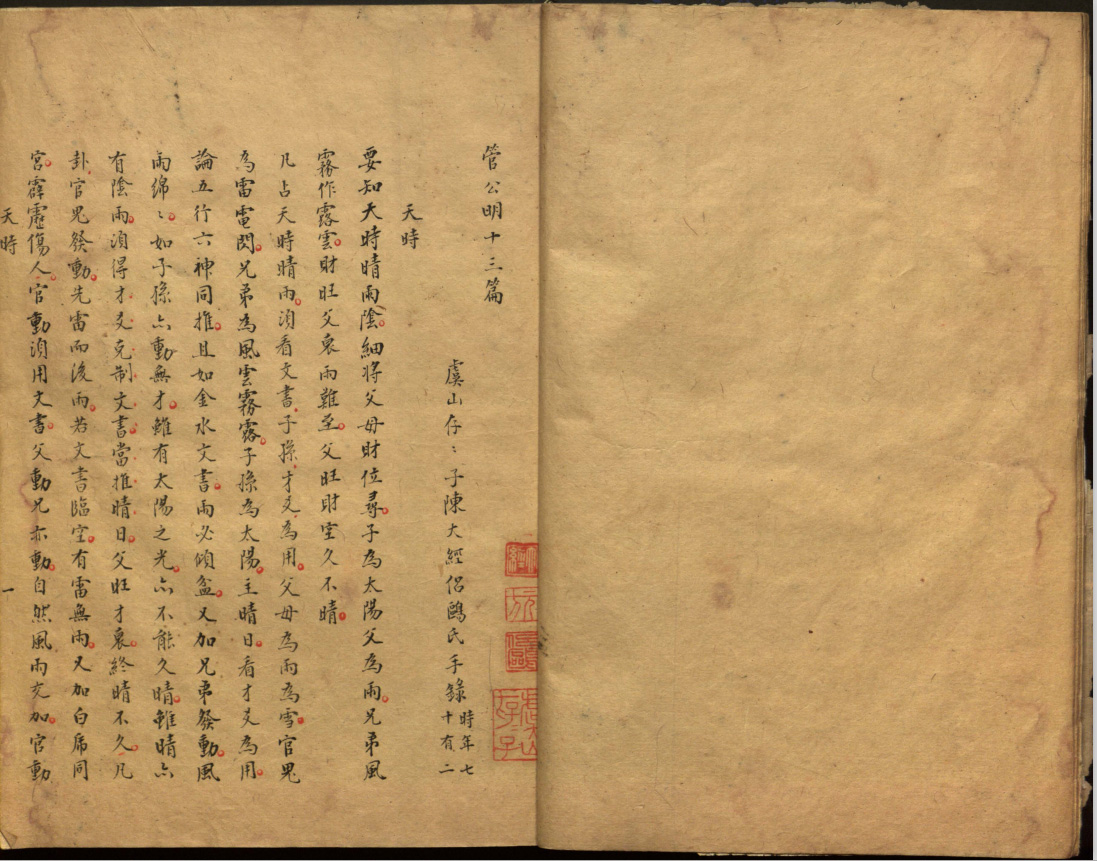 管公明十三篇
虞山存〻子陳大經侶鷗氏手錄時年七十有二
天時
要知天時晴雨陰細將父母財位尋子為太陽父為雨兄弟風
霧作露雲財旺父衰雨難至父旺財空久不晴
凡占天時晴雨須看文書子孫才爻為用父母為雨為雪官鬼
為雷電閃兄弟為風雲霧露子孫為太陽主晴日看才爻為用
論五行六神同推且如金水文書雨必傾盆又加兄弟發動風
雨綿〻如子孫亦動無才雖有太陽之光亦不能久晴雖晴亦
有陰雨須得才爻克制文書當推晴日父旺才衰終晴不久凡
卦官鬼發動先雷而後雨若文書臨空有雷無雨又加白虎同
宮霹靂傷人官動須用文書父動兄亦動自然風雨交加官動
天時
一